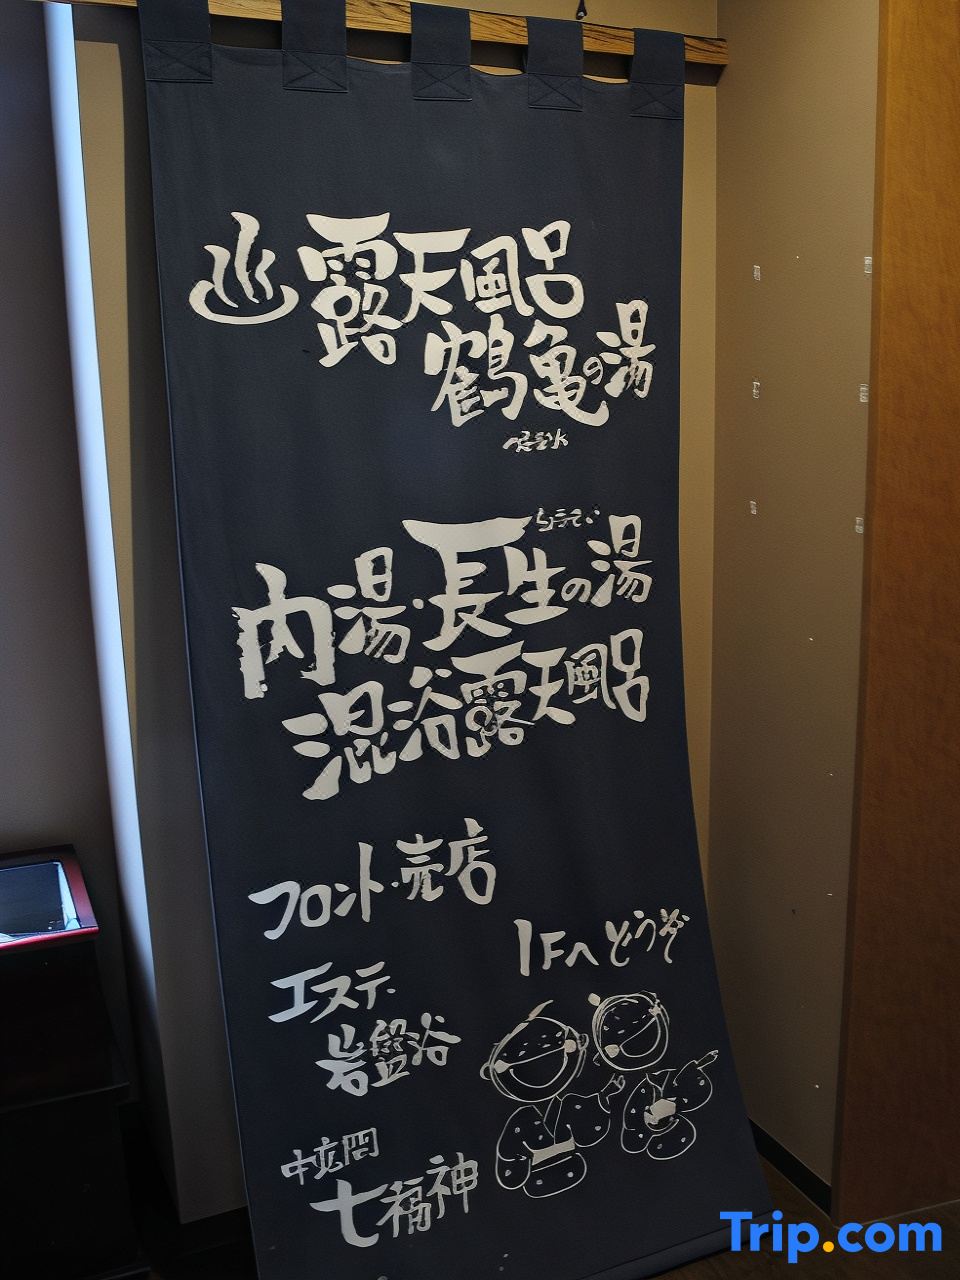 ♨露天風呂
鶴亀の湯
内湯・長生の湯
混浴露天風呂
フロント・売店
1Fへどうぞ
エステ・
岩盤浴
中広間
七福神
Trip.com